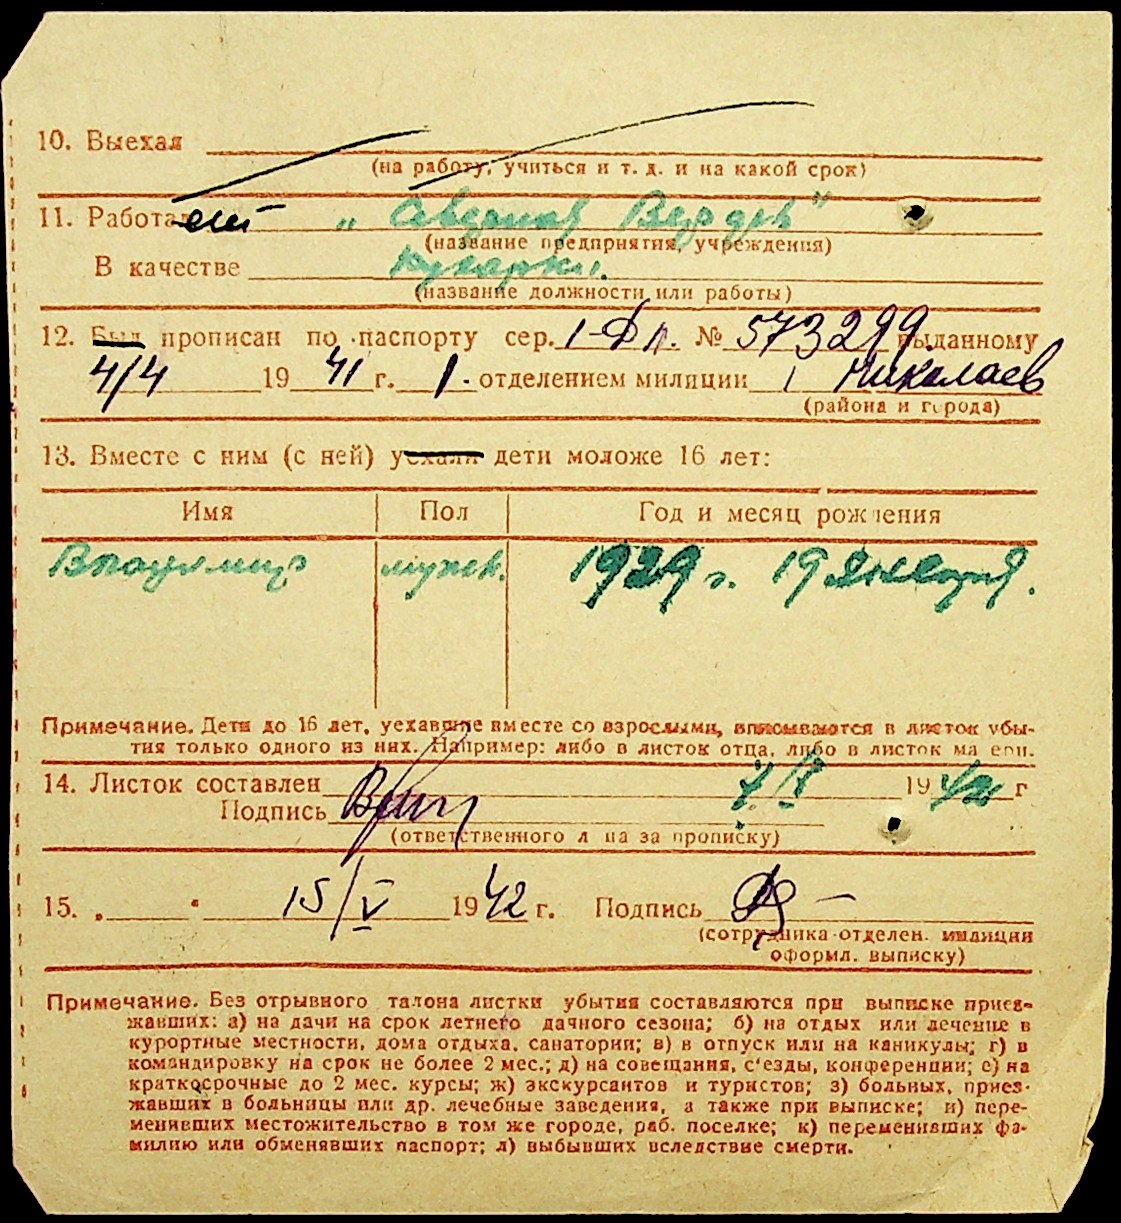 10. Выехал
(на работу, учиться и т. д. и на какой срок)
11. Работает „Северная Верфь"
(название предприятия, учреждения)
В качестве
(название должности или работы)
12. Был прописан по паспорту сер. № 573299. выданному
4/4 1941 г. 1. отделением милиции Николаев
(района и города)
13. Вместе с ним (с ней) уехали дети моложе 16 лет:
Имя Пол Год и месяц рождения
Владимир мужск. 1929 г. 19 Января.
Примечание. Дети до 16 лет, уехавшие вместе со взрослыми, вписываются в листок убы-
тия только одного из них. Например: либо в листок отца, либо в листок матери.
14. Листок составлен 1942 г
Подпись
(ответственного лица за прописку)
15. „ " 15/V 1942 г. Подпись
(сотрудника отделен. милиции
оформл. выписку)
Примечание. Без отрывного талона листки убытия составляются при выписке приез-
жавших: а) на дачи на срок летнего дачного сезона; б) на отдых или лечение в
курортные местности, дома отдыха, санатории; в) в отпуск или на каникулы; г) в
командировку на срок не более 2 мес.; д) на совещания, с'езды, конференции; е) на
краткосрочные до 2 мес. курсы; ж) экскурсантов и туристов; з) больных, приез-
жавших в больницы или др. лечебные заведения, а также при выписке; и) пере-
менивших местожительство в том же городе, раб. поселке; к) переменивших фа-
милию или обменявших паспорт; л) выбывших вследствие смерти.